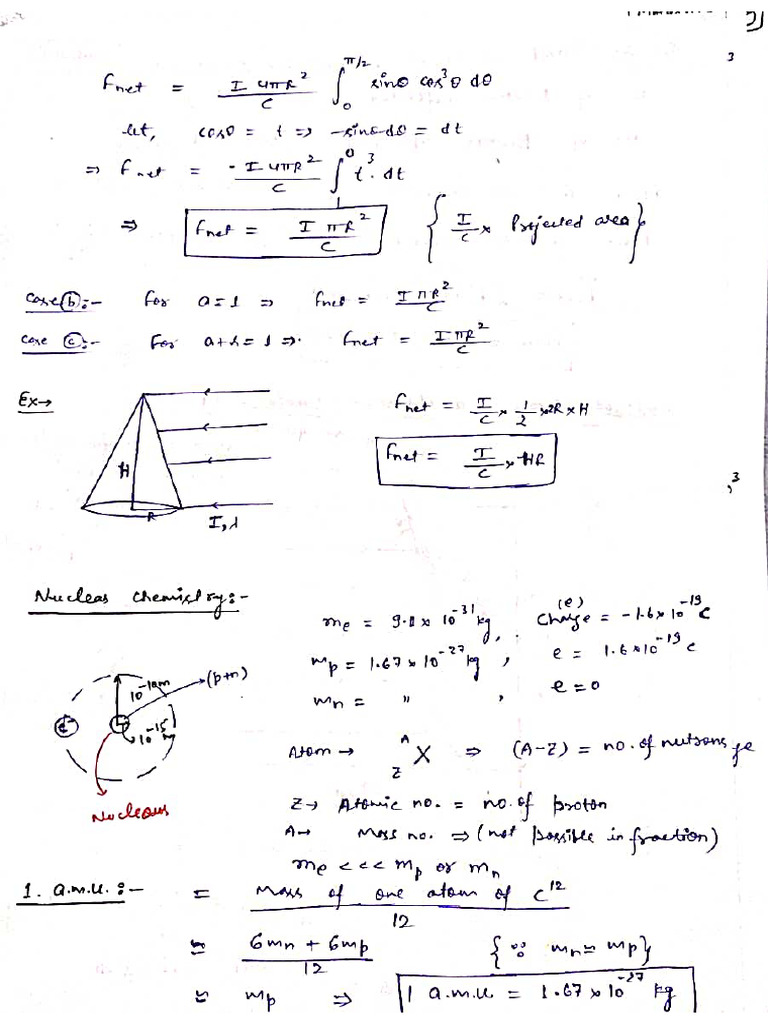 3
Fnet = I 4πR² / C ∫₀^(π/2) sinθ cos³θ dθ
let, cosθ = t => -sinθ dθ = dt
=> Fnet = -I 4πR² / C ∫₁⁰ t³. dt
=> Fnet = I πR² / C { I/C × Projected area }
Case (b):- For a=1 => Fnet = I πR² / C
Case (c):- For a+r=1 =>. Fnet = I πR² / C
Ex→
Fnet = I/C × 1/2 × 2R × H
Fnet = I/C × HR
H
R
I, λ
, 3
Nuclear Chemistry:-
me = 9.1 × 10^-31 kg, Charge (e) = -1.6 × 10^-19 C
mp = 1.67 × 10^-27 kg, e = 1.6 × 10^-19 C
mn = " , e = 0
10^-10 m
(p+n)
e-
10^-15 m
Nucleous
Atom → ᴬ_Z X => (A-Z) = no. of nutrons
Z → Atomic no. = no. of proton
A → Mass no. => (not possible in fraction)
me <<< mp or mn
1. a.m.u. :- = Mass of one atom of C¹² / 12
≃ 6mn + 6mp / 12 { ∵ mn ≃ mp }
≃ mp => 1 a.m.u. = 1.67 × 10^-27 kg